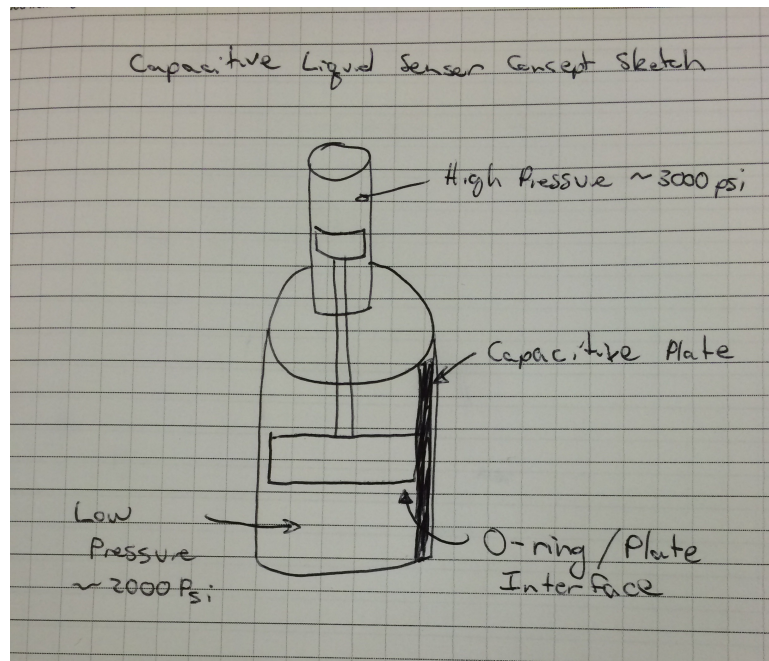 Capacitive Liquid Sensor Concept Sketch
High Pressure ~3000 psi
Capacitive Plate
Low
Pressure
~2000 Psi
O-ring/Plate
Interface